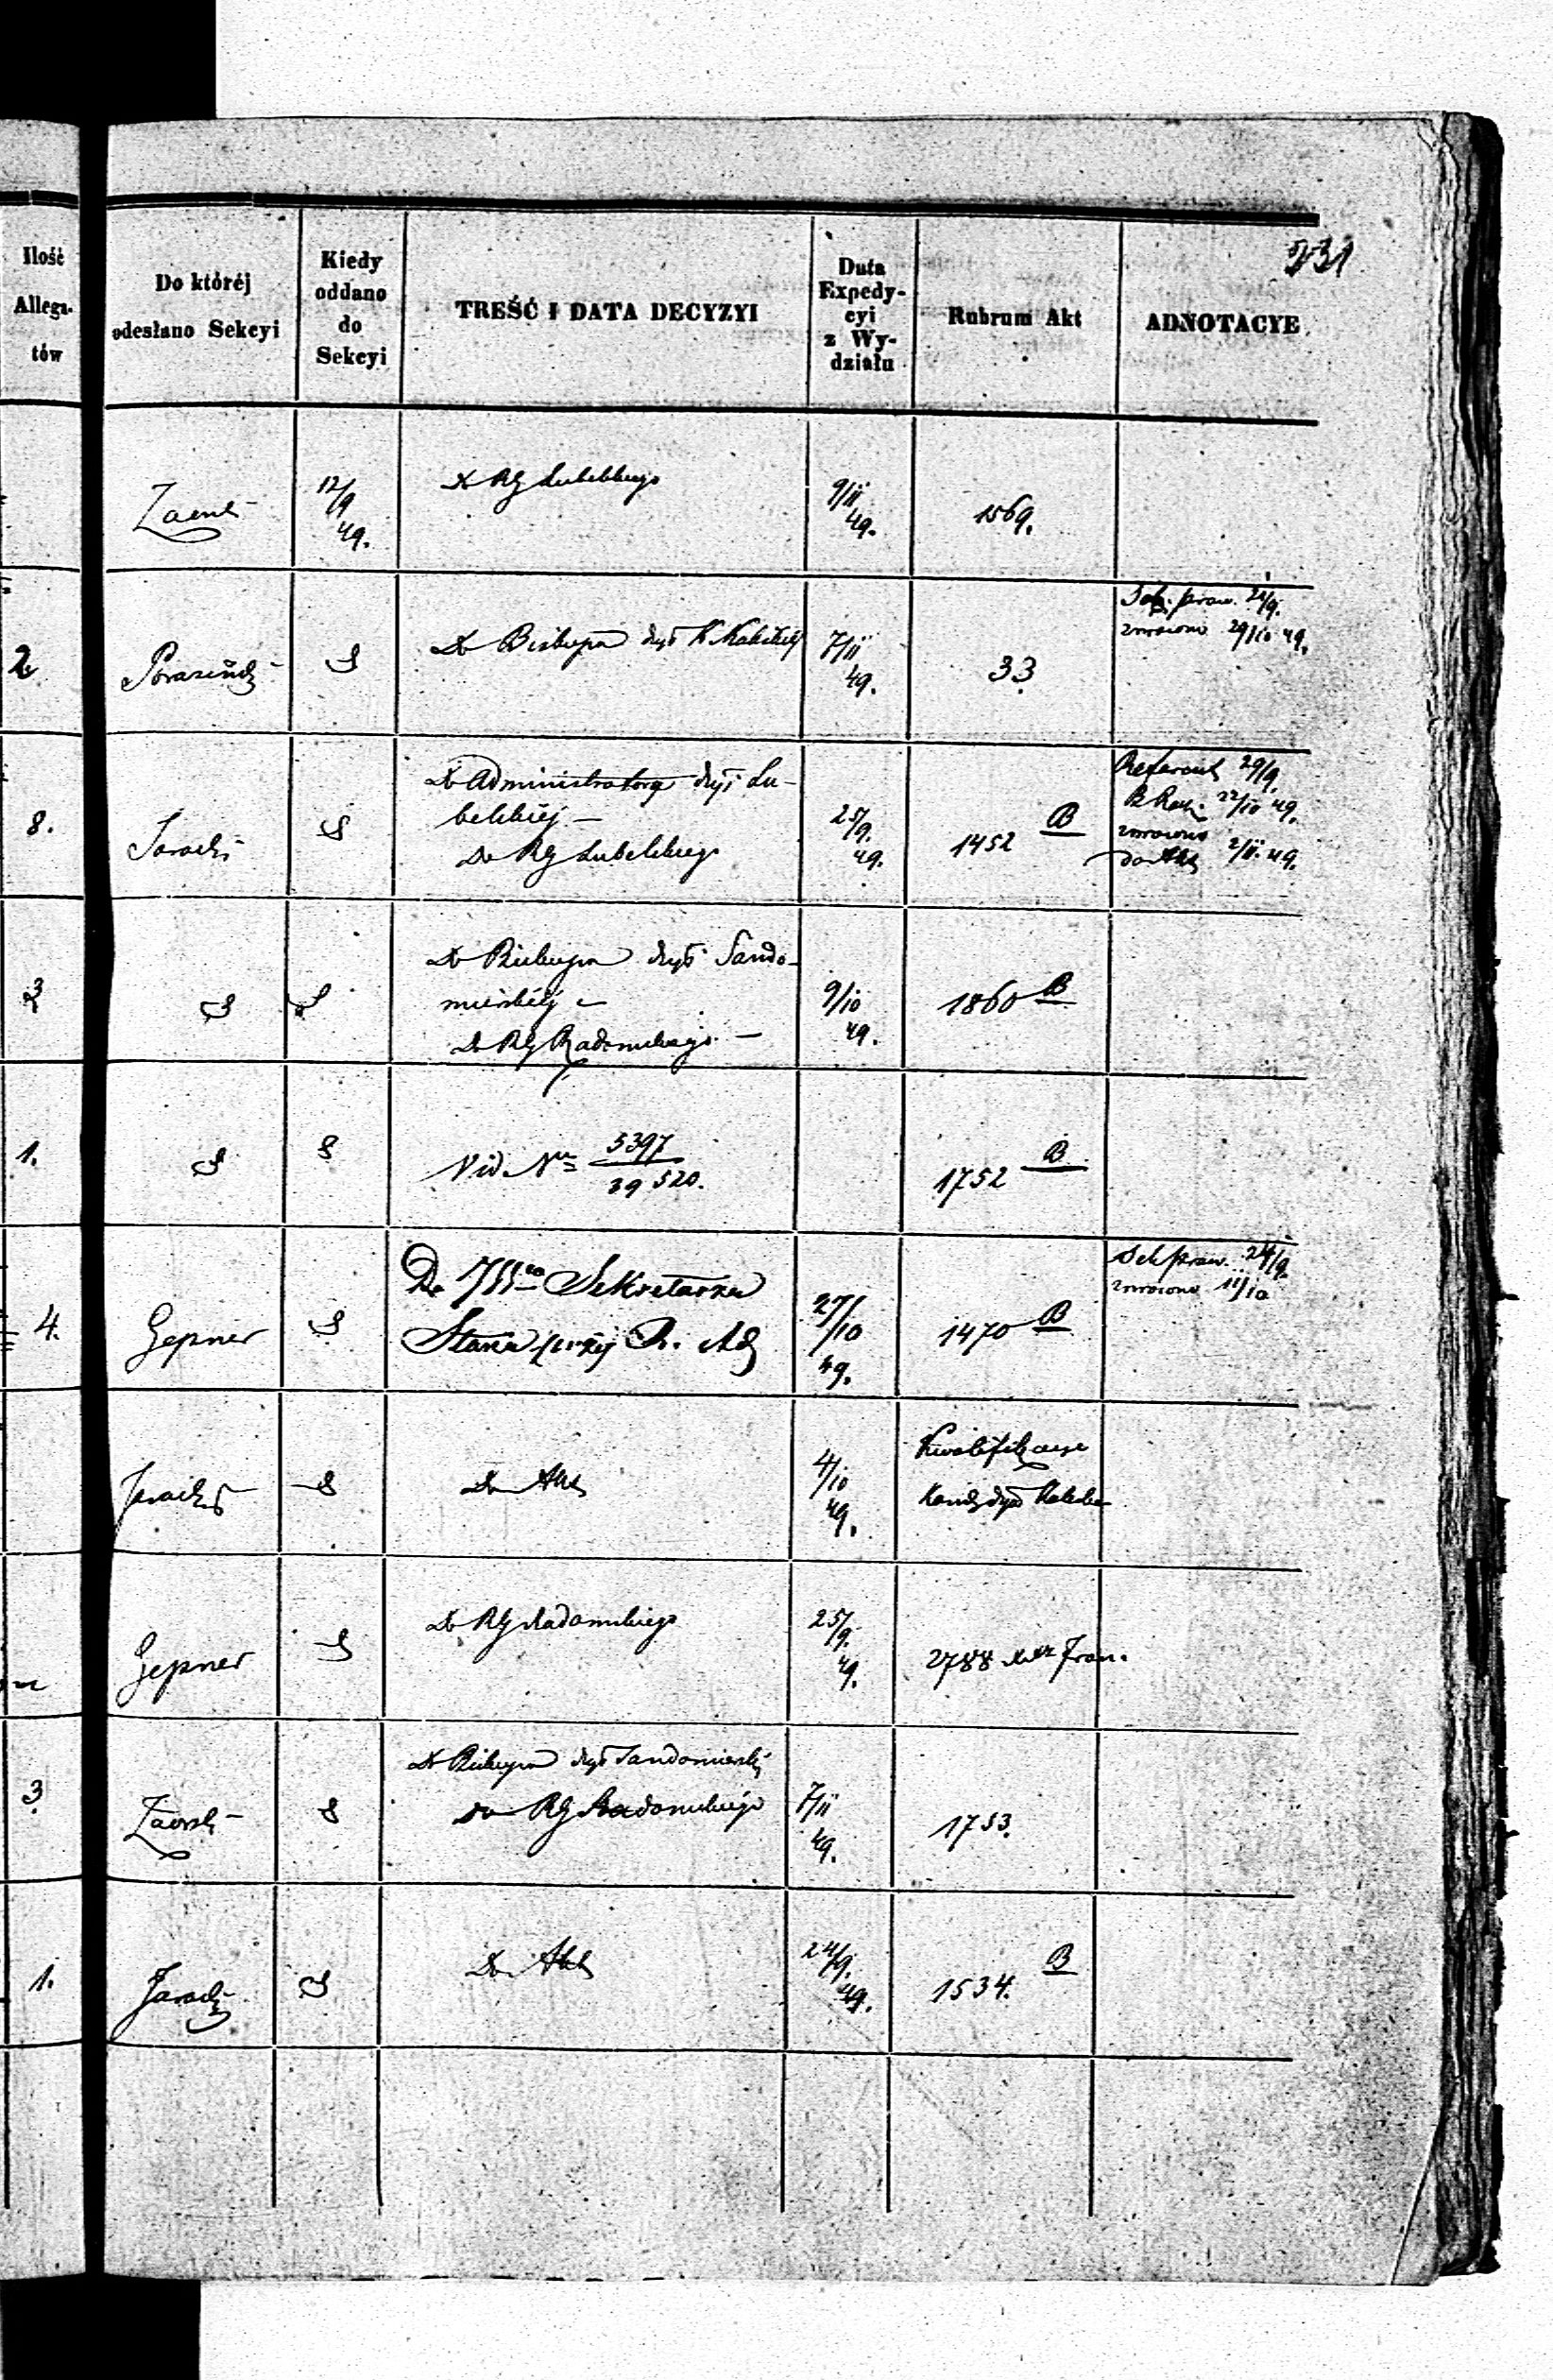 531
Ilość
Allega-
tów
Do któréj
odesłano Sekcyi
Kiedy
oddano
do
Sekcyi
TREŚĆ I DATA DECYZYI
Data
Expedy-
cyi
z Wy-
działu
Rubrum Akt
ADNOTACYE
12/9
49.
Do RG Lubelskiego
9/11
49.
1569.
2
Do Biskupa dyé K Kaliskiéj
7/11
49.
33
Sek. praw. 24/9.
zwrócono 29/10 49.
8.
Jaracki
Do Administratora dyé Lu-
belskiéj
Do RG Lubelskiego
25/9.
49.
1452 B
Referent 29/9.
22/10 49.
zwrócono
do Akt 2/11. 49.
3
Do Biskupa dyé Sando-
mierskiéj
Do RG Radomskiego
9/10
49.
1860 B
1.
Vid. Nr 5397
39520.
1752 B
4.
Gepner
Do Sekretarza
Stanu R. Ad
27/10
49.
1470 B
Sek praw. 24/9.
zwrócono 11/10
Do Akt
4/10
49.
Kwalifikacye
Gepner
Do RG Radomskiego
25/9.
49.
2788 Fran.
3
Do Biskupa dyé Sandomierskiéj
do RG Radomskiego
7/11
49.
1753.
1.
Jaracki
Do Akt
24/9.
49.
1534. B